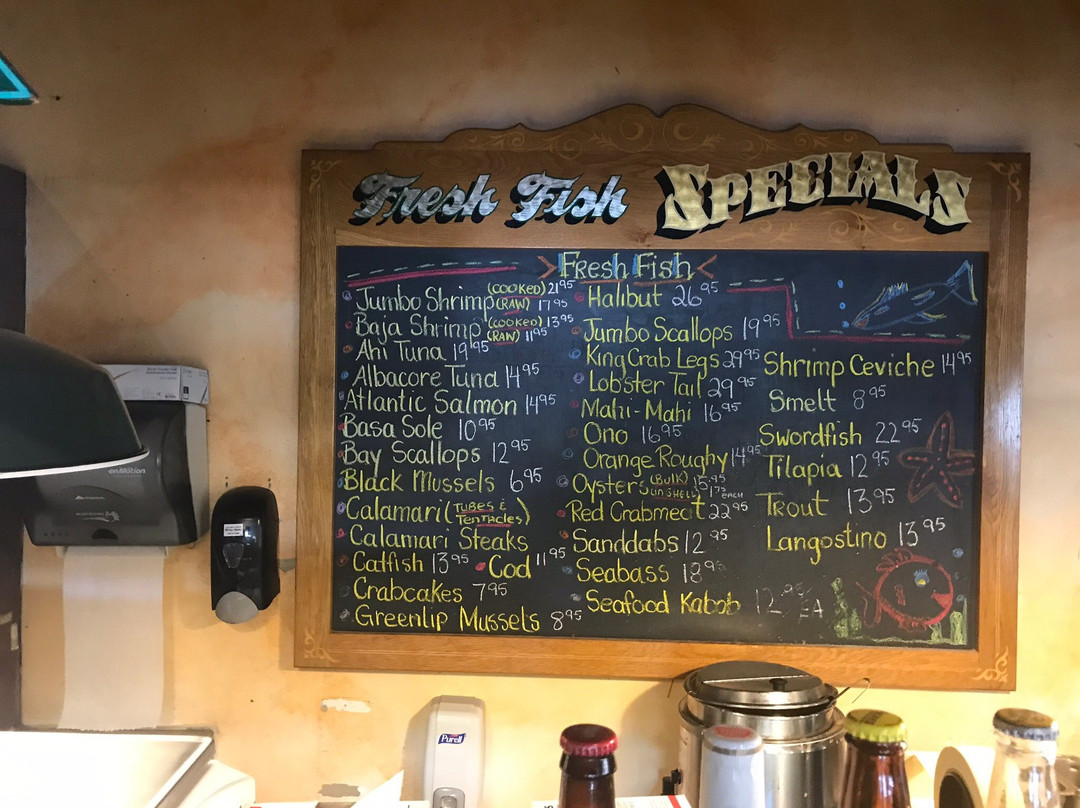 Fresh Fish SPECIALS
Fresh Fish
Jumbo Shrimp (COOKED) 21.95
(RAW) 17.95
Baja Shrimp (COOKED) 13.95
(RAW) 11.95
Ahi Tuna 19.95
Albacore Tuna 14.95
Atlantic Salmon 14.95
Basa Sole 10.95
Bay Scallops 12.95
Black Mussels 6.95
Calamari (TUBES &
TENTACLES)
Calamari Steaks
Catfish 13.95 Cod 11.95
Crabcakes 7.95
Greenlip Mussels 8.95
Halibut 26.95
Jumbo Scallops 19.95
King Crab Legs 29.95
Lobster Tail 29.95
Mahi-Mahi 16.95
Ono 16.95
Orange Roughy 14.95
Oysters (BULK) 15.95
(IN SHELL) 1.75 EACH
Red Crabmeat 22.95
Sanddabs 12.95
Seabass 18.95
Seafood Kabob 12.95 EA
Shrimp Ceviche 14.95
Smelt 8.95
Swordfish 22.95
Tilapia 12.95
Trout 13.95
Langostino 13.95
enMotion
Purell